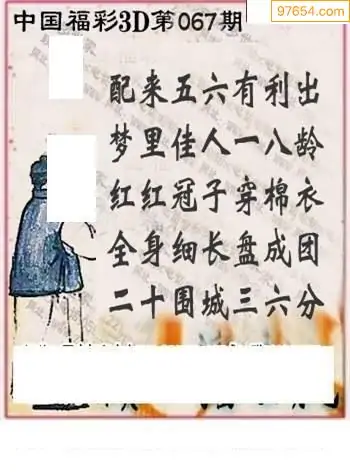 97654.com
中国福彩3D第067期
配来五六有利出
梦里佳人一八龄
红红冠子穿棉衣
全身细长盘成团
二十围城三六分